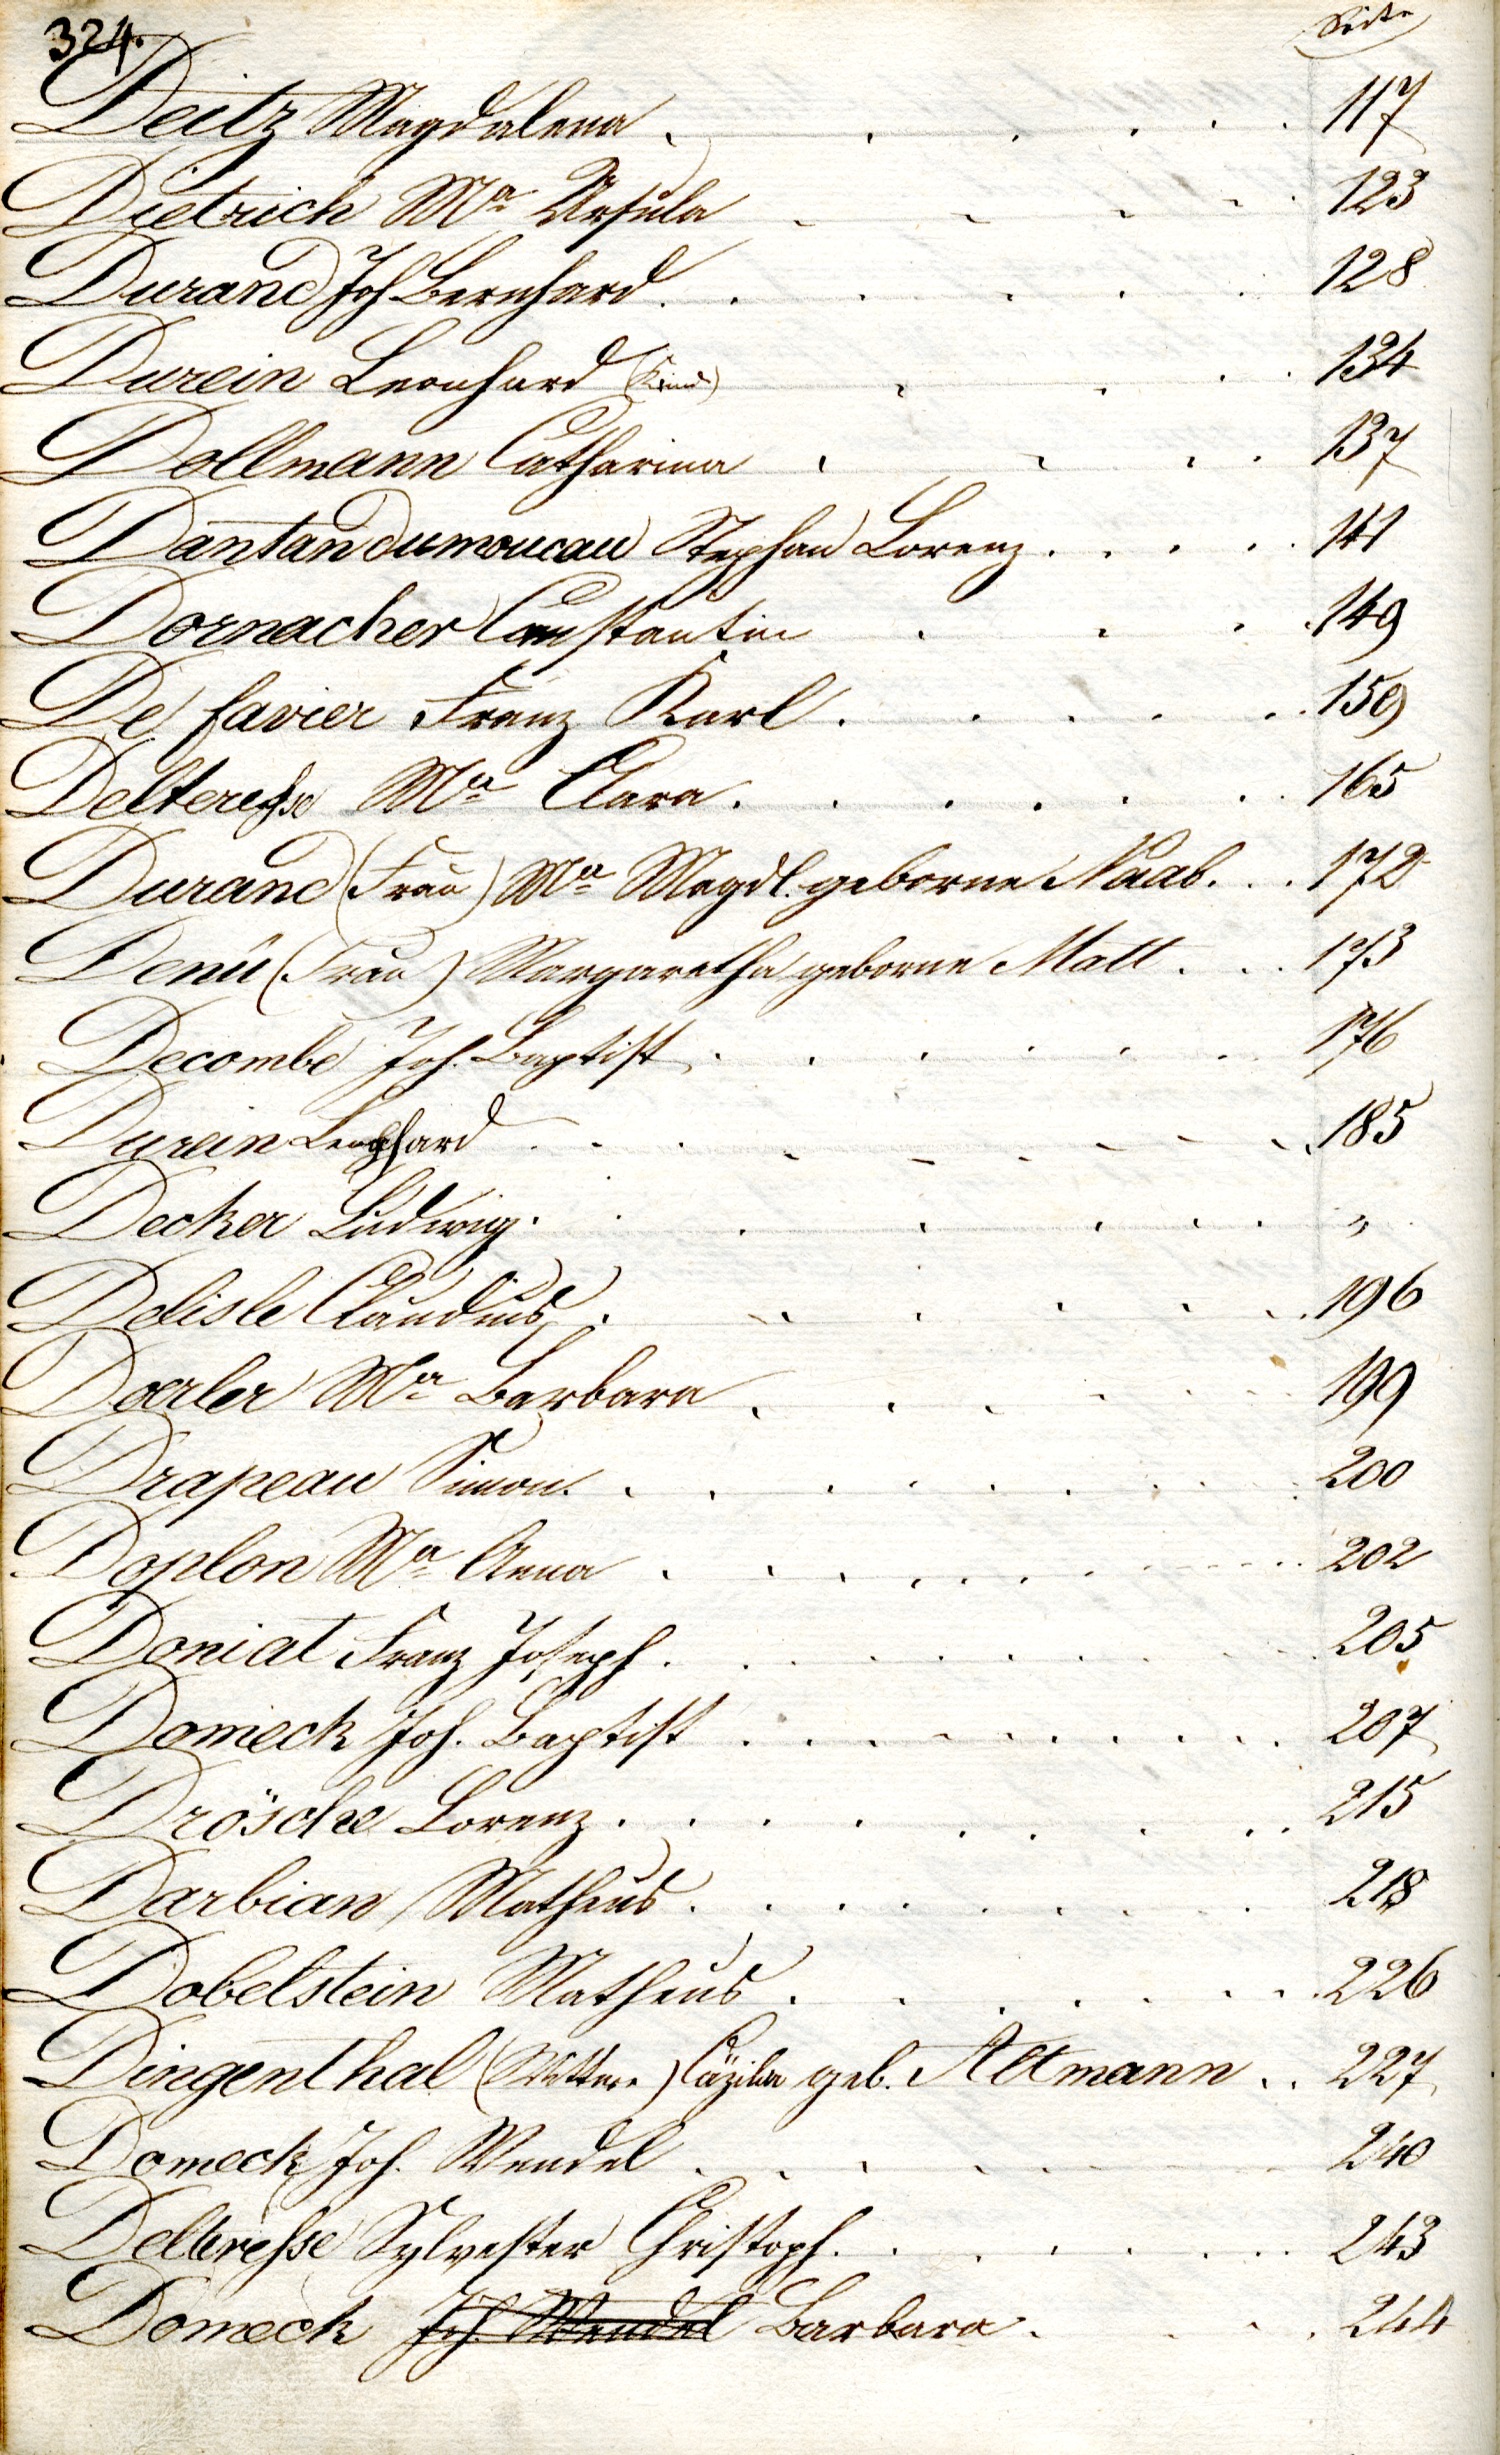 324.
Seite
Deitz Magdalena . . . . . . 117
Dietrich Ma Ursula . . . . . 123
Durand Joh Bernhard . . . . . . 128
Durein Leonhard (Kind) . . . . 134
Dollmann Catharina . . . . 137
Dantandumoucau Stephan Lorenz . . . . . 141
Dornacher Constantin . . . . 149
De favier Franz Karl . . . . . . 159
Delteresse Ma Clara . . . . . . . 165
Durand (Frau) Ma Magdl. geborne Naab . . . 172
Denü (Frau) Margaretha geborne Matt . . . 173
Decombe Joh. Baptist . . . . . . 176
Durein Leonhard . . . . . . . . . 185
Decker Ludwig . . . . . . . "
Delisle Claudius . . . . . . . 196
Doerler Ma Barbara . . . . . . 199
Drapeau Simon . . . . . . . . 200
Doplon Ma Anna . . . . . . . . . 202
Doniat Franz Joseph . . . . . . . . . 205
Domeck Joh. Baptist . . . . . . . . . 207
Drösche Lorenz . . . . . . . . 215
Darbian Matheus . . . . . . . . 218
Dobelstein Matheus . . . . . . . 226
Dingenthal (Wittwe) Cäzilia geb. Altmann . . 227
Domeck Joh. Wendel . . . . . . . . 240
Delteresse Sylvester Christoph . . . . . . . . 243
Domeck Joh. Wendel Barbara . . . . 244